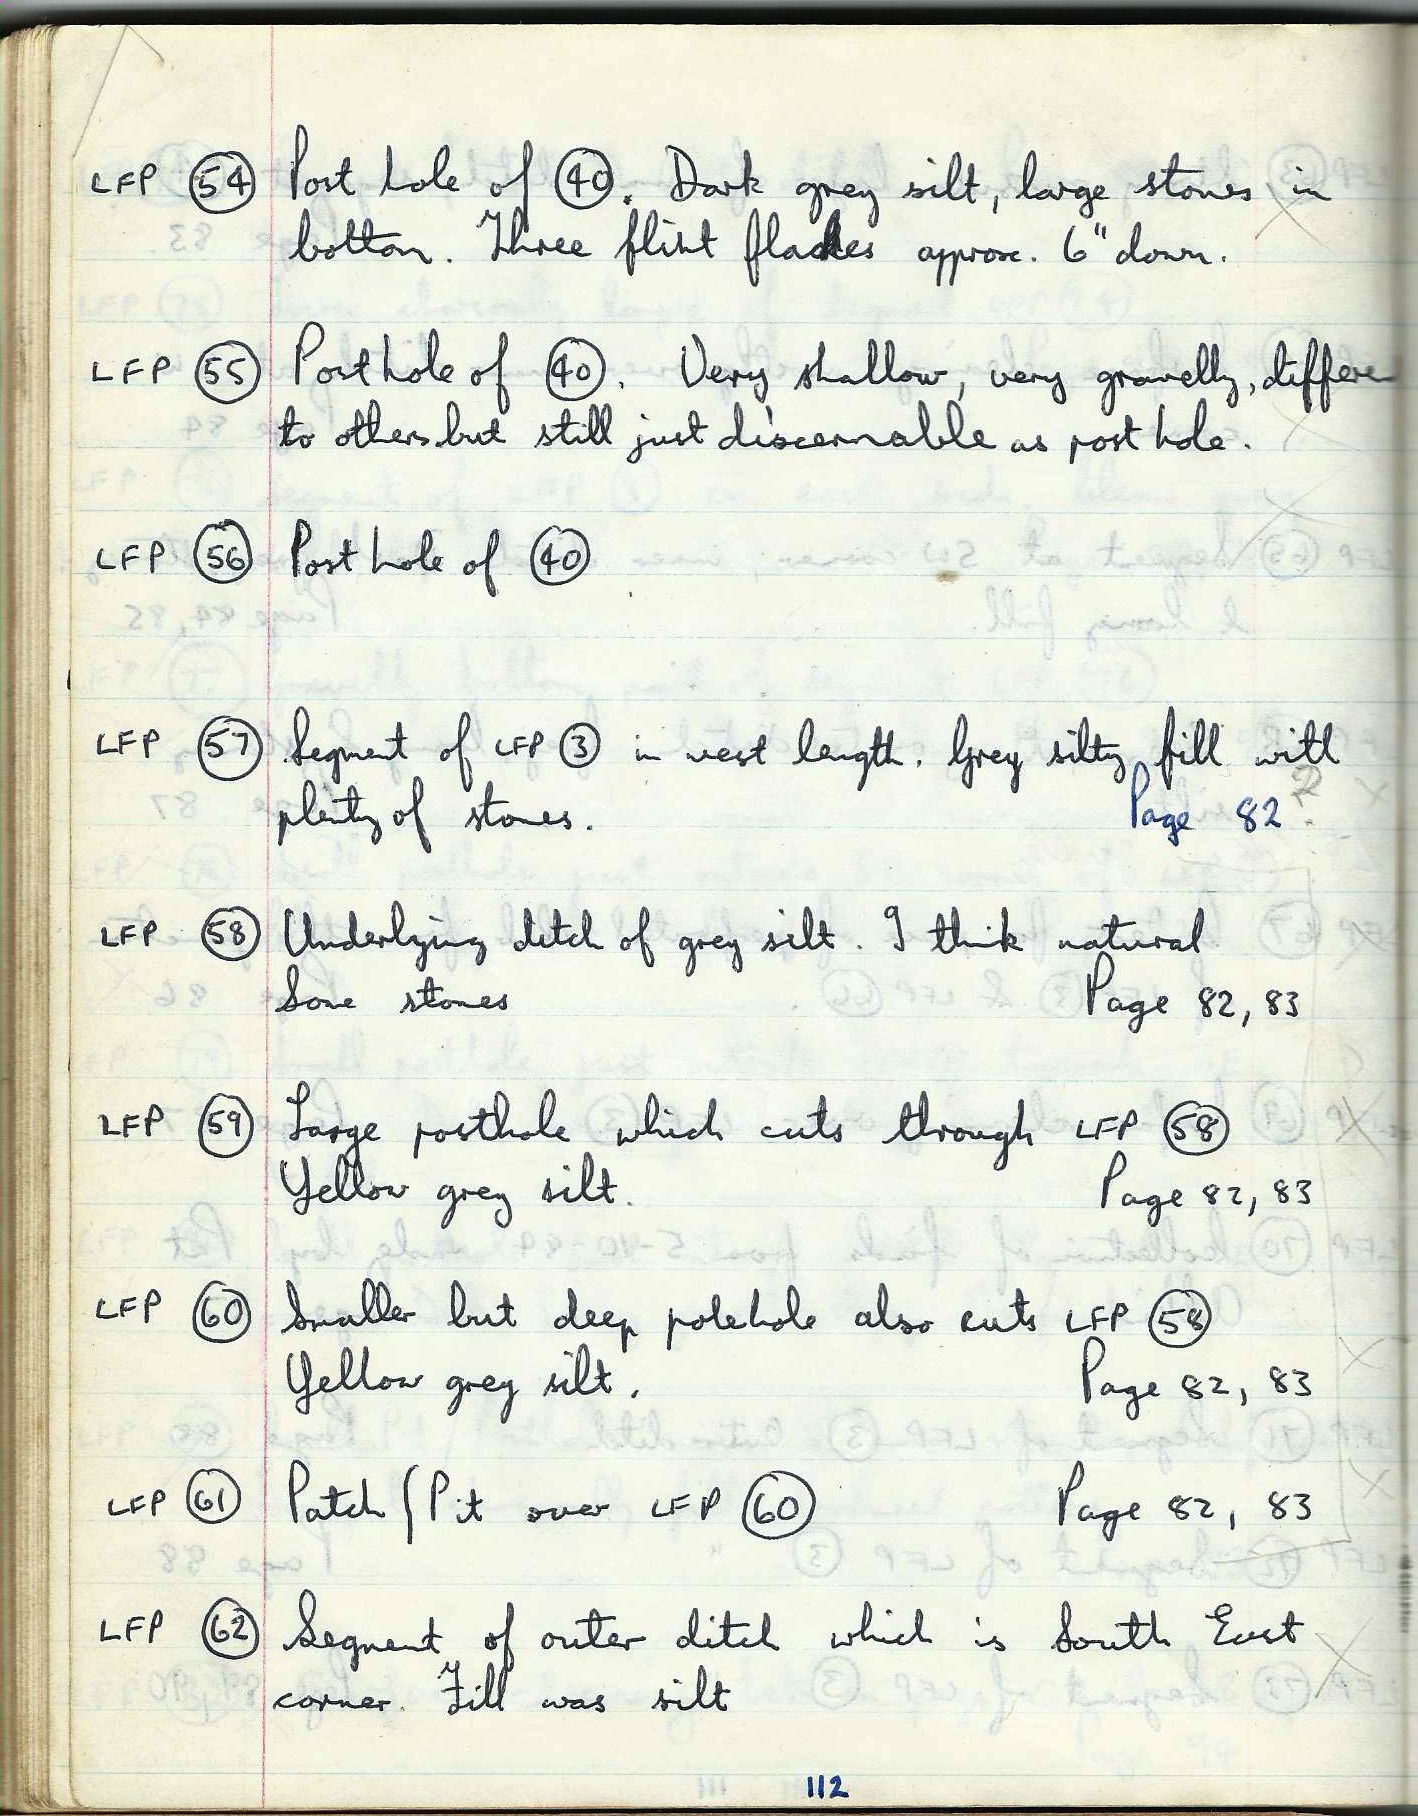 LFP (54) Post hole of (40). Dark grey silt, large stones in
bottom. Three flint flakes approx. 6" down.
LFP (55) Post hole of (40). Very shallow, very gravelly, differen
to others but still just discernable as post hole.
LFP (56) Post hole of (40)
LFP (57) Segment of LFP (3) in west length. Grey silty fill with
plenty of stones. Page 82
LFP (58) Underlying ditch of grey silt. I think natural
Some stones Page 82, 83
LFP (59) Large posthole which cuts through LFP (58)
Yellow grey silt. Page 82, 83
LFP (60) Smaller but deep polehole also cuts LFP (58)
Yellow grey silt. Page 82, 83
LFP (61) Patch / Pit over LFP (60) Page 82, 83
LFP (62) Segment of outer ditch which is South East
corner. Fill was silt
112